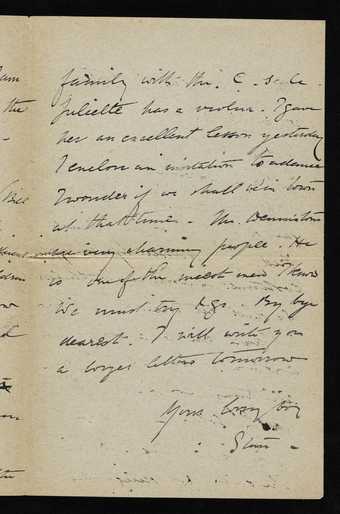 family with the C. scale
Juliette has a violin. I gave
her an excellent lesson yesterday
I enclose an invitation to a dance
I wonder if we shall be in town
at that time. The Dennistons
are very charming people. He
is one of the nicest men I know
We must try & go. By bye
dearest. I will write you
a longer letter tomorrow
Your loving boy